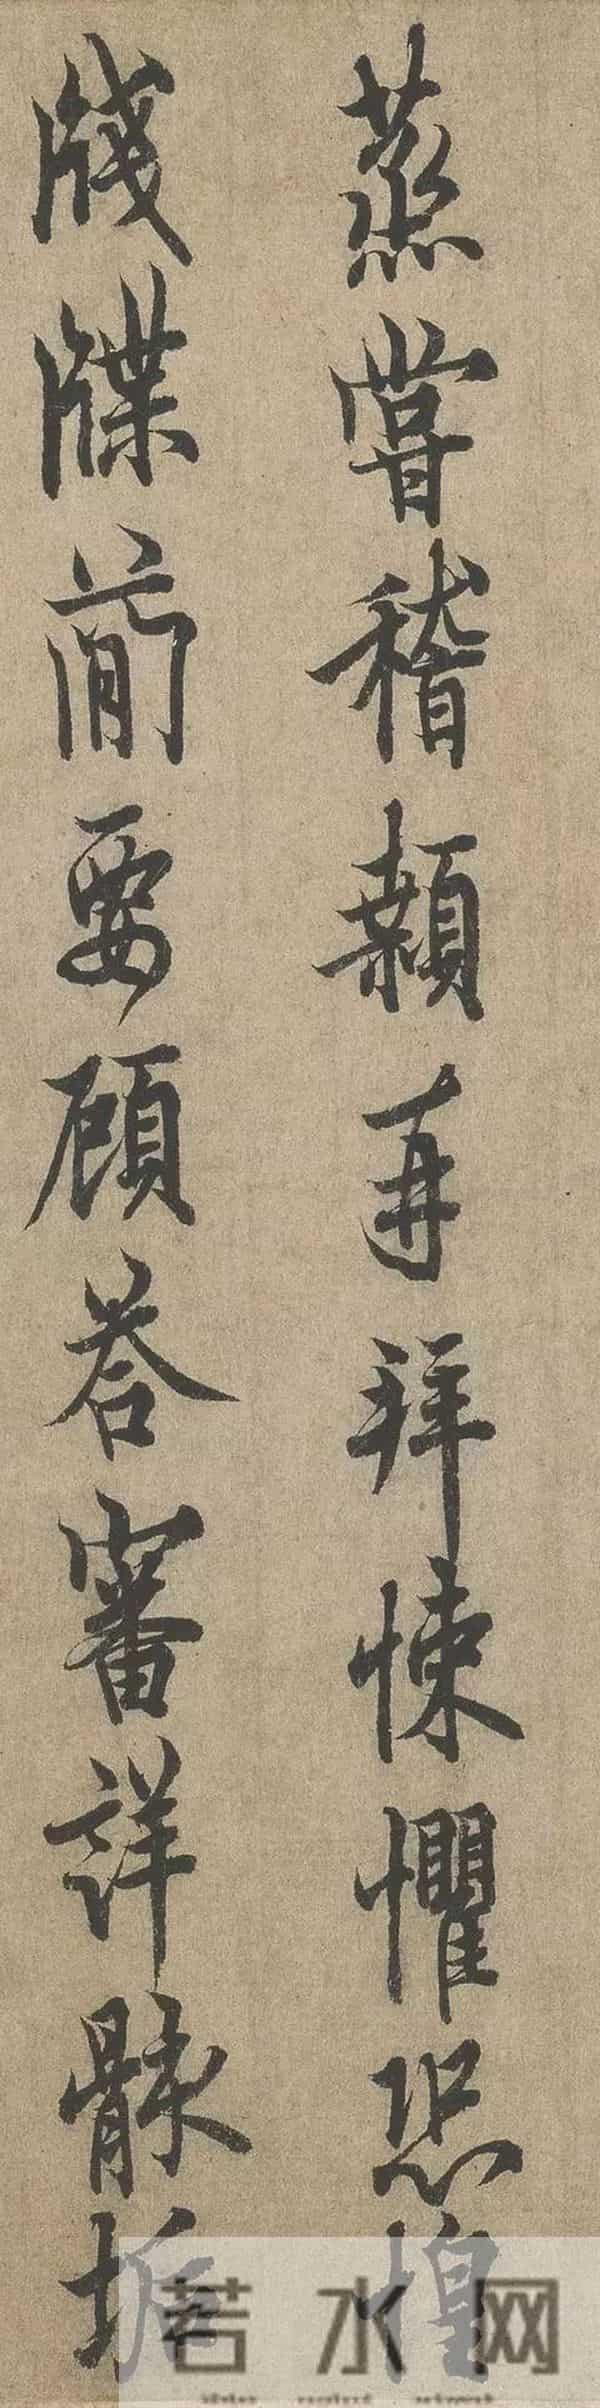 蒸嘗稽顙再拜悚懼恐惶
牋牒簡要顧答審詳骸垢
若水网